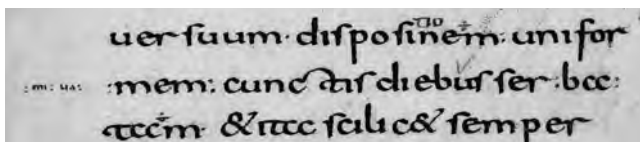 uersuum· disposi͏nem· unifor
:m: ua: :mem: cunctis diebus ser:ba:
tam· &ita scilic& semper